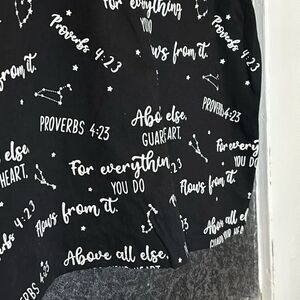 For everything
YOU
Proverbs 4:23
ws from it.
from it.
PROVERBS 4:23
PROVERBS 4:23
Abo else,
GUAR EART.
else,
HEART.
For everythin
YOU DO
For every
YOU DO
:23
Flows from it.
Flows from it.
4:23
Above all else,
HEART.
Above all else,
PROVERBS 4:23